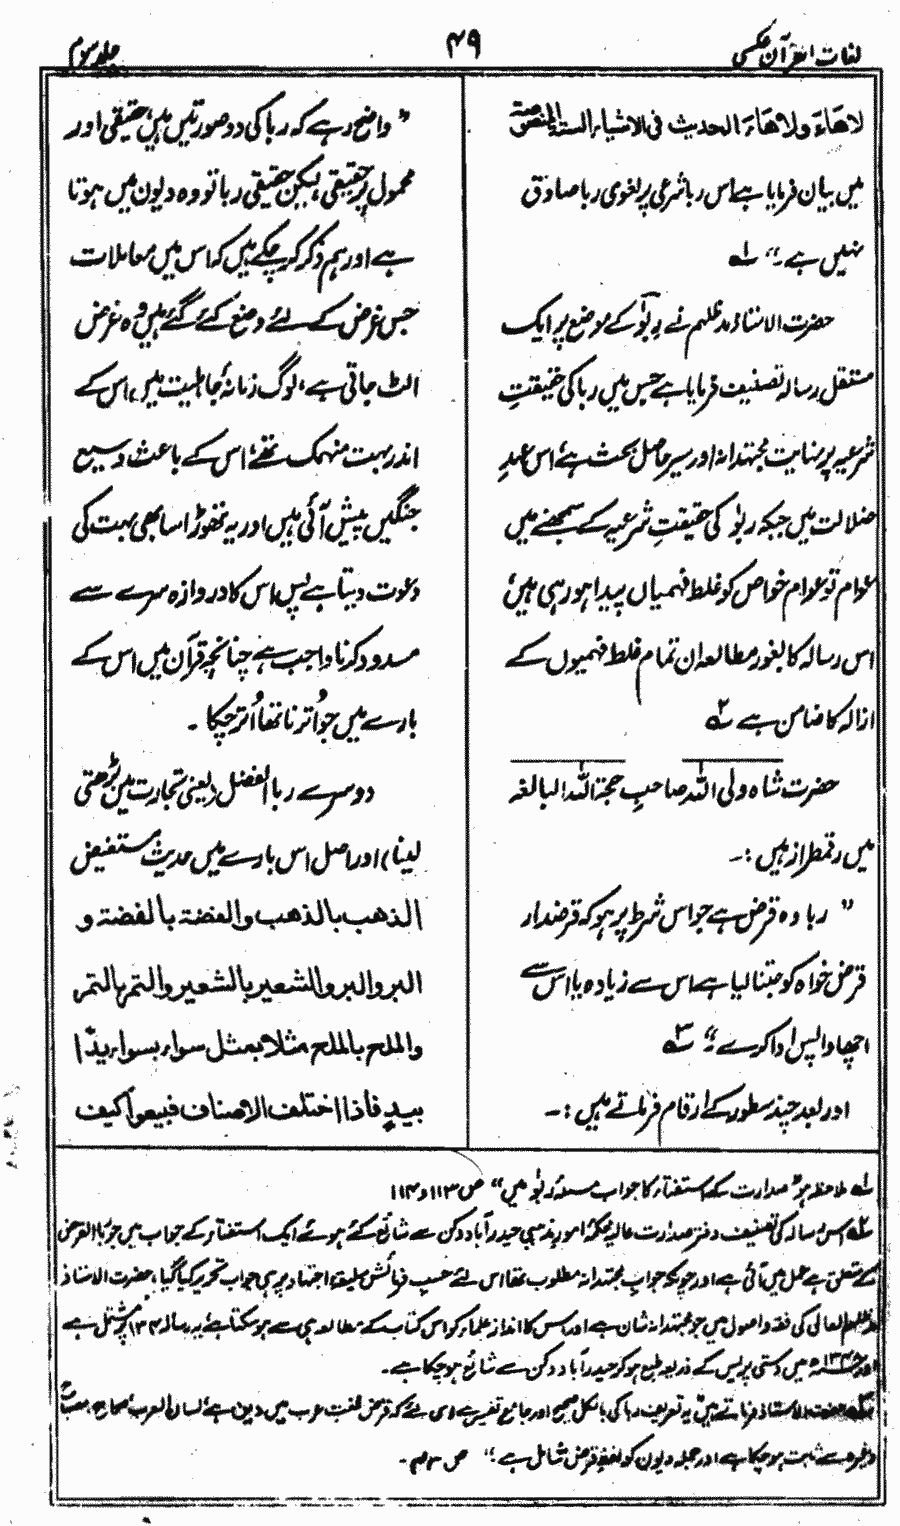 لغات القرآن عکسی
۴۹
جلد سوم
لاھاءَ ولاھاءَ الحدیث فی الاشیاء الستۃ المنصوصۃ
میں بیان فرمایا ہے اس ربا شرعی پر لغوی ربا صادق
نہیں ہے ؛؛ لہ
حضرت الاستاذ مدظلہم نے رِبٰوا کے موضوع پر ایک
مستقل رسالہ تصنیف فرمایا ہے جس میں ربا کی حقیقتِ
شرعیہ پر نہایت مجتہدانہ اور سیر حاصل بحث ہے، اس عہدِ
ضلالت میں جبکہ ربوٰا کی حقیقتِ شرعیہ کے سمجھنے میں
عوام تو عوام خواص کو غلط فہمیاں پیدا ہو رہی ہیں،
اس رسالہ کا بغور مطالعہ ان تمام غلط فہمیوں کے
ازالہ کا ضامن ہے ۲ہ
حضرت شاہ ولی اللہ صاحبِ حجۃ اللہ البالغہ
میں رقمطراز ہیں :۔
” ربا وہ قرض ہے جو اس شرط پر ہو کہ قرضدار
قرض خواہ کو جتنا لیا ہے اس سے زیادہ یا اس سے
اچھا واپس ادا کرے ؛“ ۳ہ
اور بعد چند سطور کے ارقام فرماتے ہیں :۔
” واضح رہے کہ ربا کی دو صورتیں ہیں، حقیقی اور
محمول بر حقیقی، لیکن حقیقی ربا تو وہ دیون میں ہوتا
ہے اور ہم ذکر کر چکے ہیں کہ اس میں معاملات
جس غرض کے لئے وضع کئے گئے ہیں وہ غرض
الٹ جاتی ہے، لوگ زمانۂ جاہلیت میں، اس کے
اندر بہت منہمک تھے، اس کے باعث وسیع
جنگیں پیش آئی ہیں اور یہ تھوڑا سا بھی بہت کی
دعوت دیتا ہے پس اس کا دروازہ سرے سے
مسدود کرنا واجب ہے چنانچہ قرآن میں اس کے
بارے میں جو اُترنا تھا اُتر چکا ۔
دوسرے ربا الفضل (یعنی تجارت میں بڑھتی
لینا) اور اصل اس بارے میں حدیث مستفیض
الذھب بالذھب والفضۃ بالفضۃ و
البر والبر والشعیر بالشعیر والتمر بالتمر
والملح بالملح مثلا بمثل سواء بسواء یدًا
بیدٍ فاذا اختلف الاصناف فبیعوا کیف
لہ ملاحظہ ہو ” صدارت کے استفتاء کا جواب مسئلہ ربٰو میں “ ص ۱۱۳ و ۱۱۴
۲ہ اس رسالہ کی تصنیف دفتر صدارت عالیہ محکمۂ امور مذہبی حیدرآباد دکن سے شائع کئے ہوئے ایک استفتاء کے جواب میں جو ربا القرض
کے متعلق ہے عمل میں آئی ہے اور چونکہ جواب مجتہدانہ مطلوب تھا اس لئے حسب فرمائش سلیقۂ اجتہاد پر ہی جواب تحریر کیا گیا، حضرت الاستاذ
مدظلہم العالی کی فقہ و اصول میں جو مجتہدانہ شان ہے اور اس کا انداز علماء کو اس کتاب کے مطالعہ ہی سے ہو سکتا ہے، یہ رسالہ ۱۳۴ پر مشتمل ہے
اور میں دکنی پریس کے ذریعہ طبع ہو کر حیدرآباد دکن سے شائع ہو چکا ہے۔
حضرت الاستاذ فرماتے ہیں ” یہ تعریف ربا کی بالکل صحیح اور جامع تفسیر ہے اس لئے کہ قرض لغت عرب میں دین ہے، لسان العرب، صحاح،
وغیرہ سے ثابت ہو چکا ہے اور جملہ دیون کو لفظ قرض شامل ہے ؛“ ص ۳۴۔